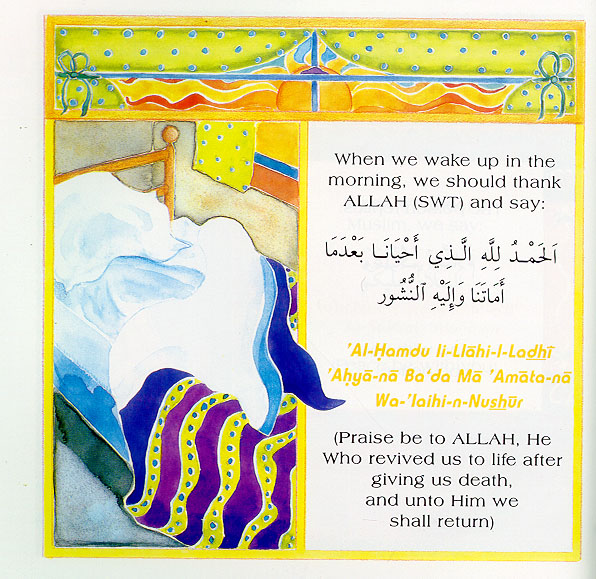 When we wake up in the
morning, we should thank
ALLAH (SWT) and say:
اَلحَمْـدُ لِلَّهِ الَّـذِي أَحْيَانَـا بَعْدَمَا
أَمَاتَنَا وَإِلَيْهِ ٱلنُّشُور
'Al-Ḥamdu li-Llāhi-l-Ladhī
'Aḥyā-nā Ba'da Mā 'Amāta-nā
Wa-'laihi-n-Nushūr
(Praise be to ALLAH, He
Who revived us to life after
giving us death,
and unto Him we
shall return)